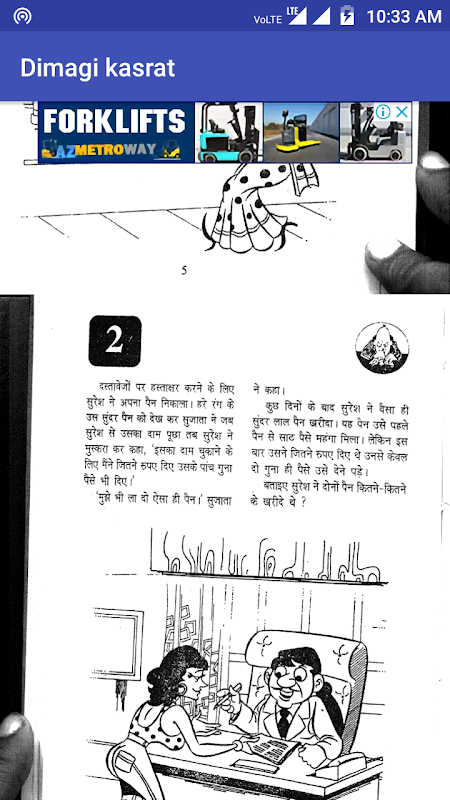 VoLTE LTE 10:33 AM
Dimagi kasrat
FORKLIFTS
AZMETROWAY
5
2
दस्तावेजों पर हस्ताक्षर करने के लिए
सुरेश ने अपना पैन निकाला। हरे रंग के
उस सुंदर पैन को देख कर सुजाता ने जब
सुरेश से उसका दाम पूछा तब सुरेश ने
मुस्करा कर कहा, 'इसका दाम चुकाने के
लिए मैंने जितने रुपए दिए उसके पांच गुना
पैसे भी दिए।'
'मुझे भी ला दो ऐसा ही पैन।' सुजाता
ने कहा।
कुछ दिनों के बाद सुरेश ने वैसा ही
सुंदर लाल पैन खरीदा। यह पैन उसे पहले
पैन से साठ पैसे महंगा मिला। लेकिन इस
बार उसने जितने रुपए दिए थे उनसे केवल
दो गुना ही पैसे उसे देने पड़े।
बताइए सुरेश ने दोनों पैन कितने-कितने
के खरीदे थे ?